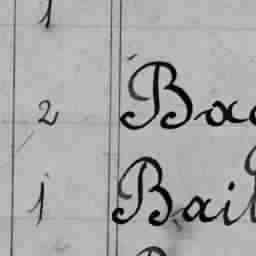 1
2 Bac
1 Bail